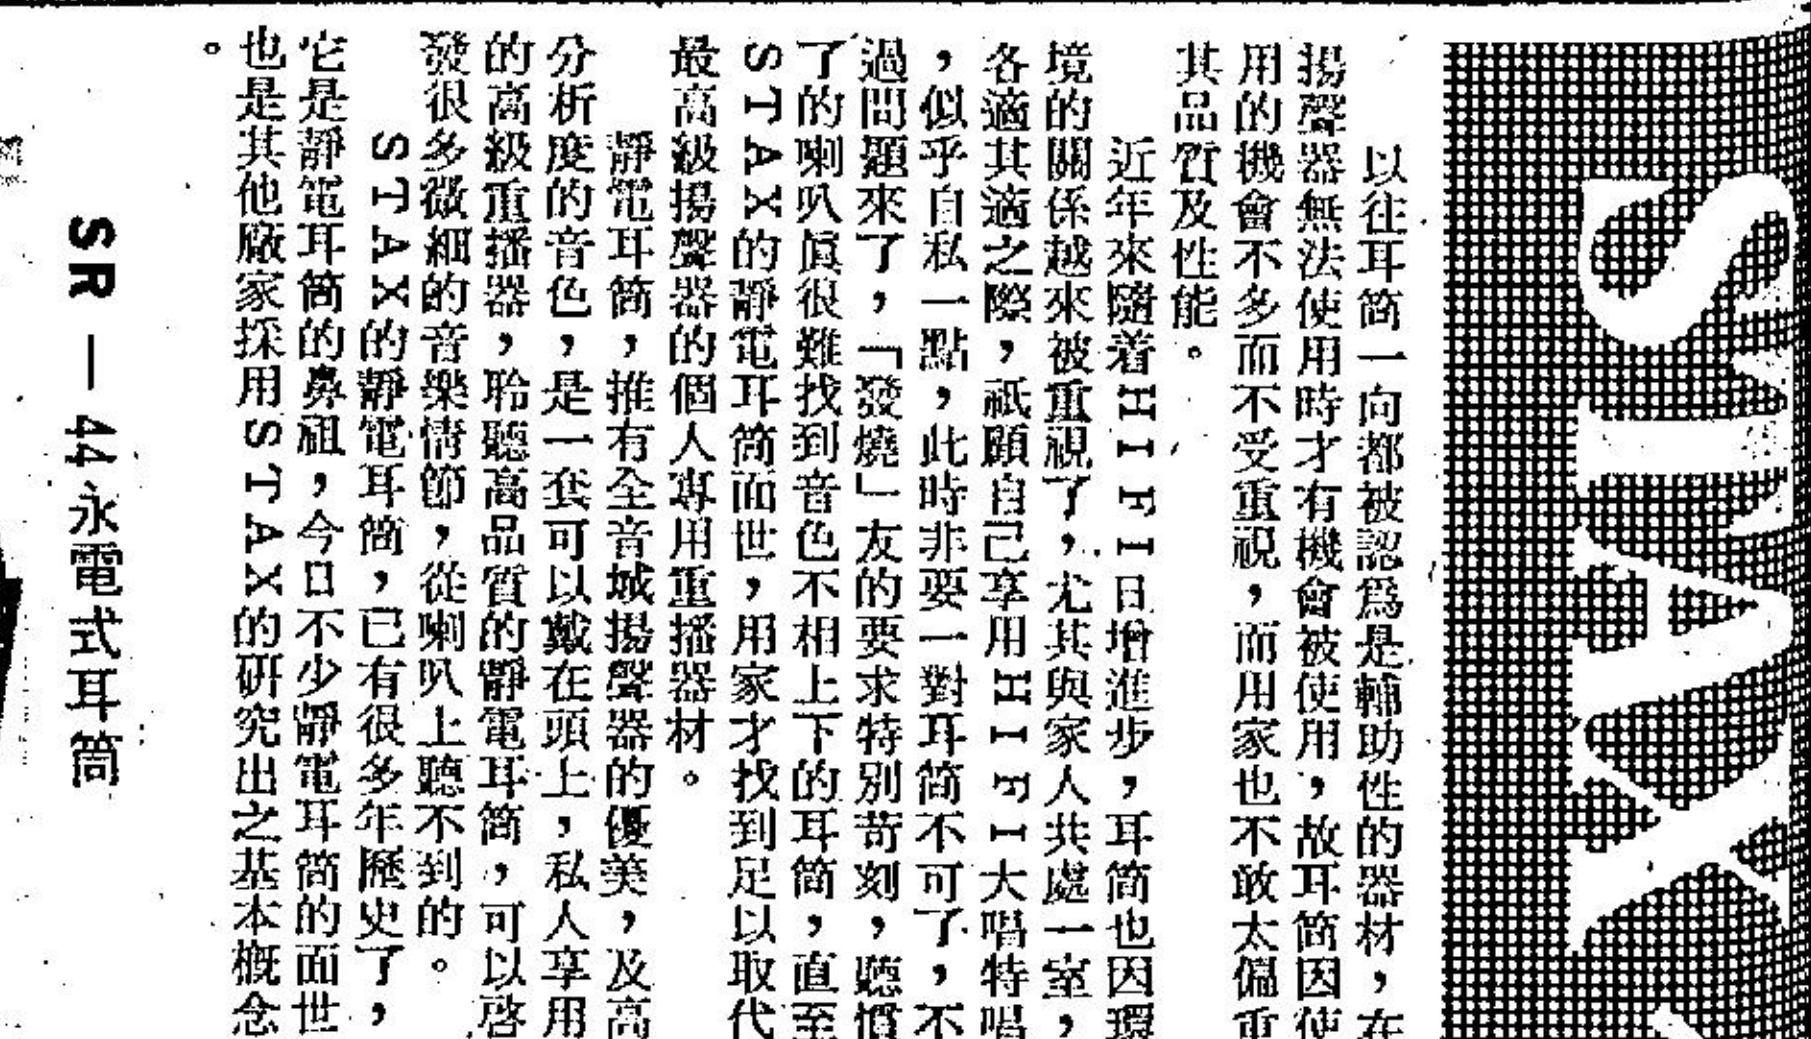 STAX
以往耳筒一向都被認爲是輔助性的器材，在
揚聲器無法使用時才有機會被使用，故耳筒因使
用的機會不多而不受重視，而用家也不敢太偏重
其品質及性能。
近年來隨着HIFI日增進步，耳筒也因環
境的關係越來被重視了，尤其與家人共處一室，
各適其適之際，祇顧自己享用HIFI大唱特唱
，似乎自私一點，此時非要一對耳筒不可了，不
過問題來了，「發燒」友的要求特別苛刻，聽慣
了的喇叭眞很難找到音色不相上下的耳筒，直至
STAX的靜電耳筒面世，用家才找到足以取代
最高級揚聲器的個人專用重播器材。
靜電耳筒，推有全音域揚聲器的優美，及高
分析度的音色，是一套可以戴在頭上，私人享用
的高級重播器，聆聽高品質的靜電耳筒，可以啓
發很多微細的音樂情節，從喇叭上聽不到的。
STAX的靜電耳筒，已有很多年歷史了，
它是靜電耳筒的鼻祖，今日不少靜電耳筒的面世
也是其他廠家採用STAX的研究出之基本概念
。
SR—44永電式耳筒